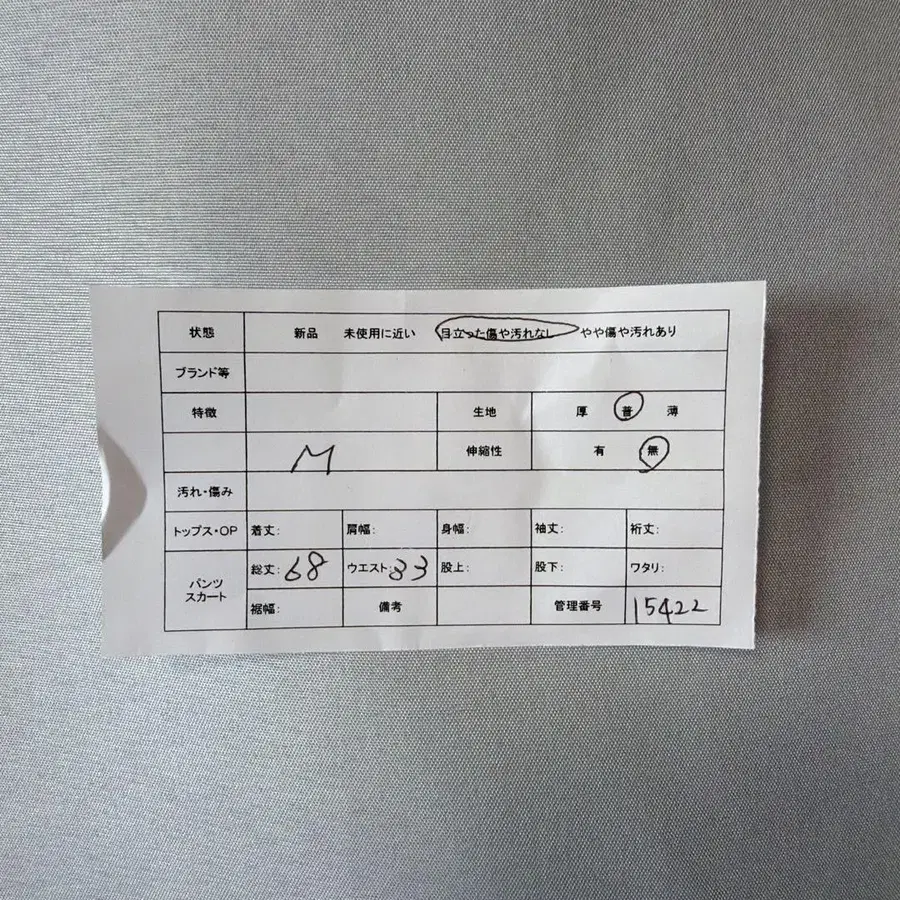 状態 新品 未使用に近い 目立った傷や汚れなし やや傷や汚れあり
ブランド等
特徴 生地 厚 普 薄
M 伸縮性 有 無
汚れ・傷み
トップス・OP 着丈: 肩幅: 身幅: 袖丈: 裄丈:
パンツ スカート 総丈: 68 ウエスト: 33 股上: 股下: ワタリ:
裾幅: 備考 管理番号 15422